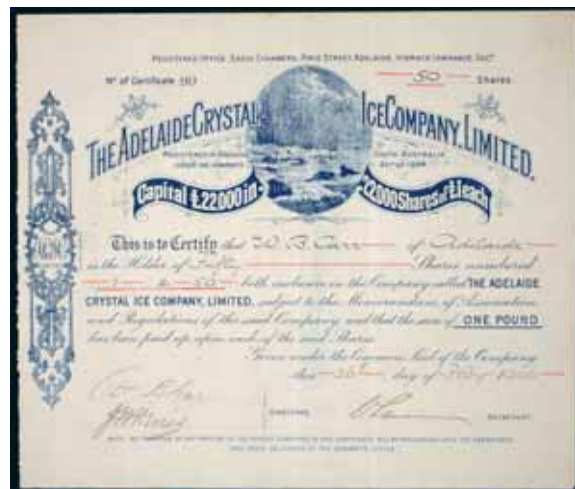 REGISTERED OFFICE, EAGLE CHAMBERS, PIRIE STREET, ADELAIDE, HORACE LAWRANCE, SECY
No of Certificate
50 Shares.
THE ADELAIDE CRYSTAL ICE COMPANY, LIMITED.
SOUTH AUSTRALIA
Capital £22000 in 22000 Shares of £1 each
This is to Certify that W. B. Carr of Adelaide
is the Holder of Fifty Shares numbered
1 to 50 both inclusive in the Company called THE ADELAIDE
CRYSTAL ICE COMPANY, LIMITED, subject to the Memorandum of Association
and Regulations of the said Company and that the sum of ONE POUND
has been paid up upon each of the said Shares.
Given under the Common Seal of the Company
this day of
DIRECTORS. SECRETARY.